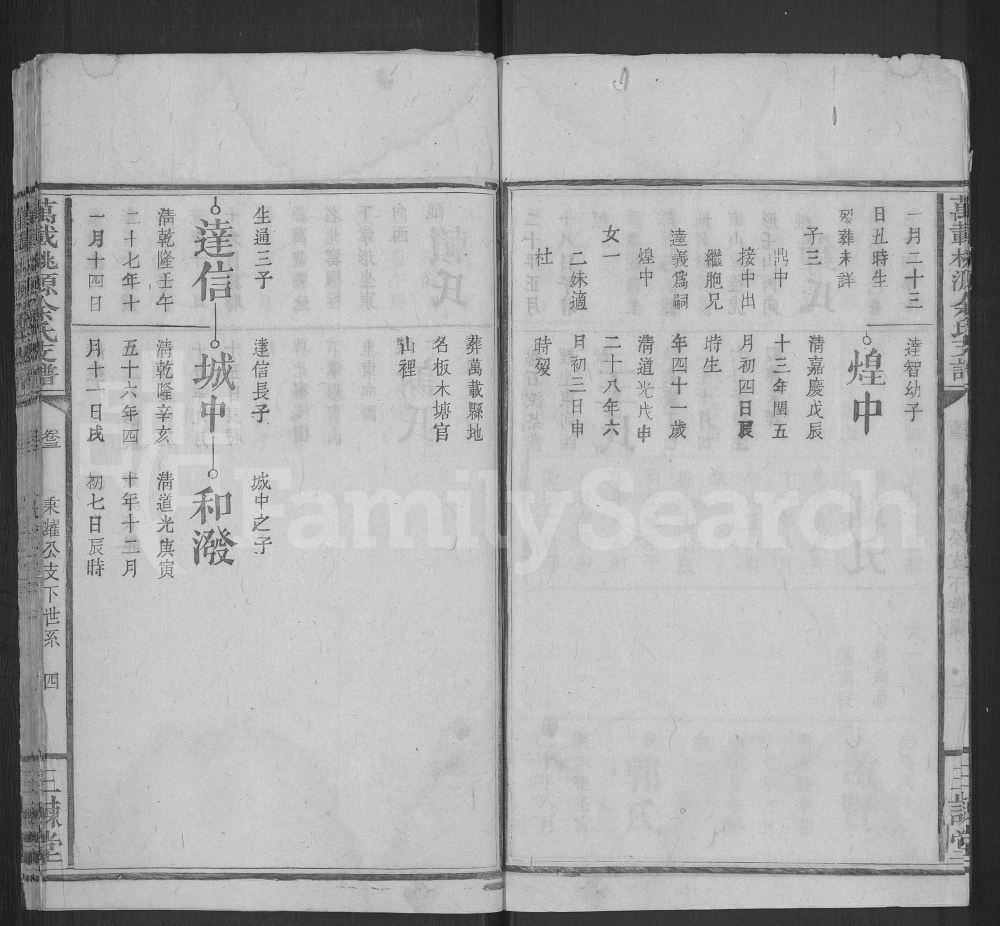 一月二十三
日丑時生
歿葬未詳
子三
鼎中
按中出
繼胞兄
達義爲嗣
煌中
女一
二妹適
杜
達智幼子
煌中
清嘉慶戊辰
十三年閏五
月初四日艮
時生
年四十一歲
清道光戊申
二十八年六
月初三日申
時歿
葬萬載縣地
名板木塘官
山裡
生通三子
達信
清乾隆壬午
二十七年十
一月十四日
達信長子
城中
清乾隆辛亥
五十六年四
月十一日戌
城中之子
和潑
清道光庚寅
十年十二月
初七日辰時
萬載桃源余氏支譜
卷三
秉耀公支下世系
四
三諫堂
萬載桃源余氏支譜
三諫堂
FamilySearch